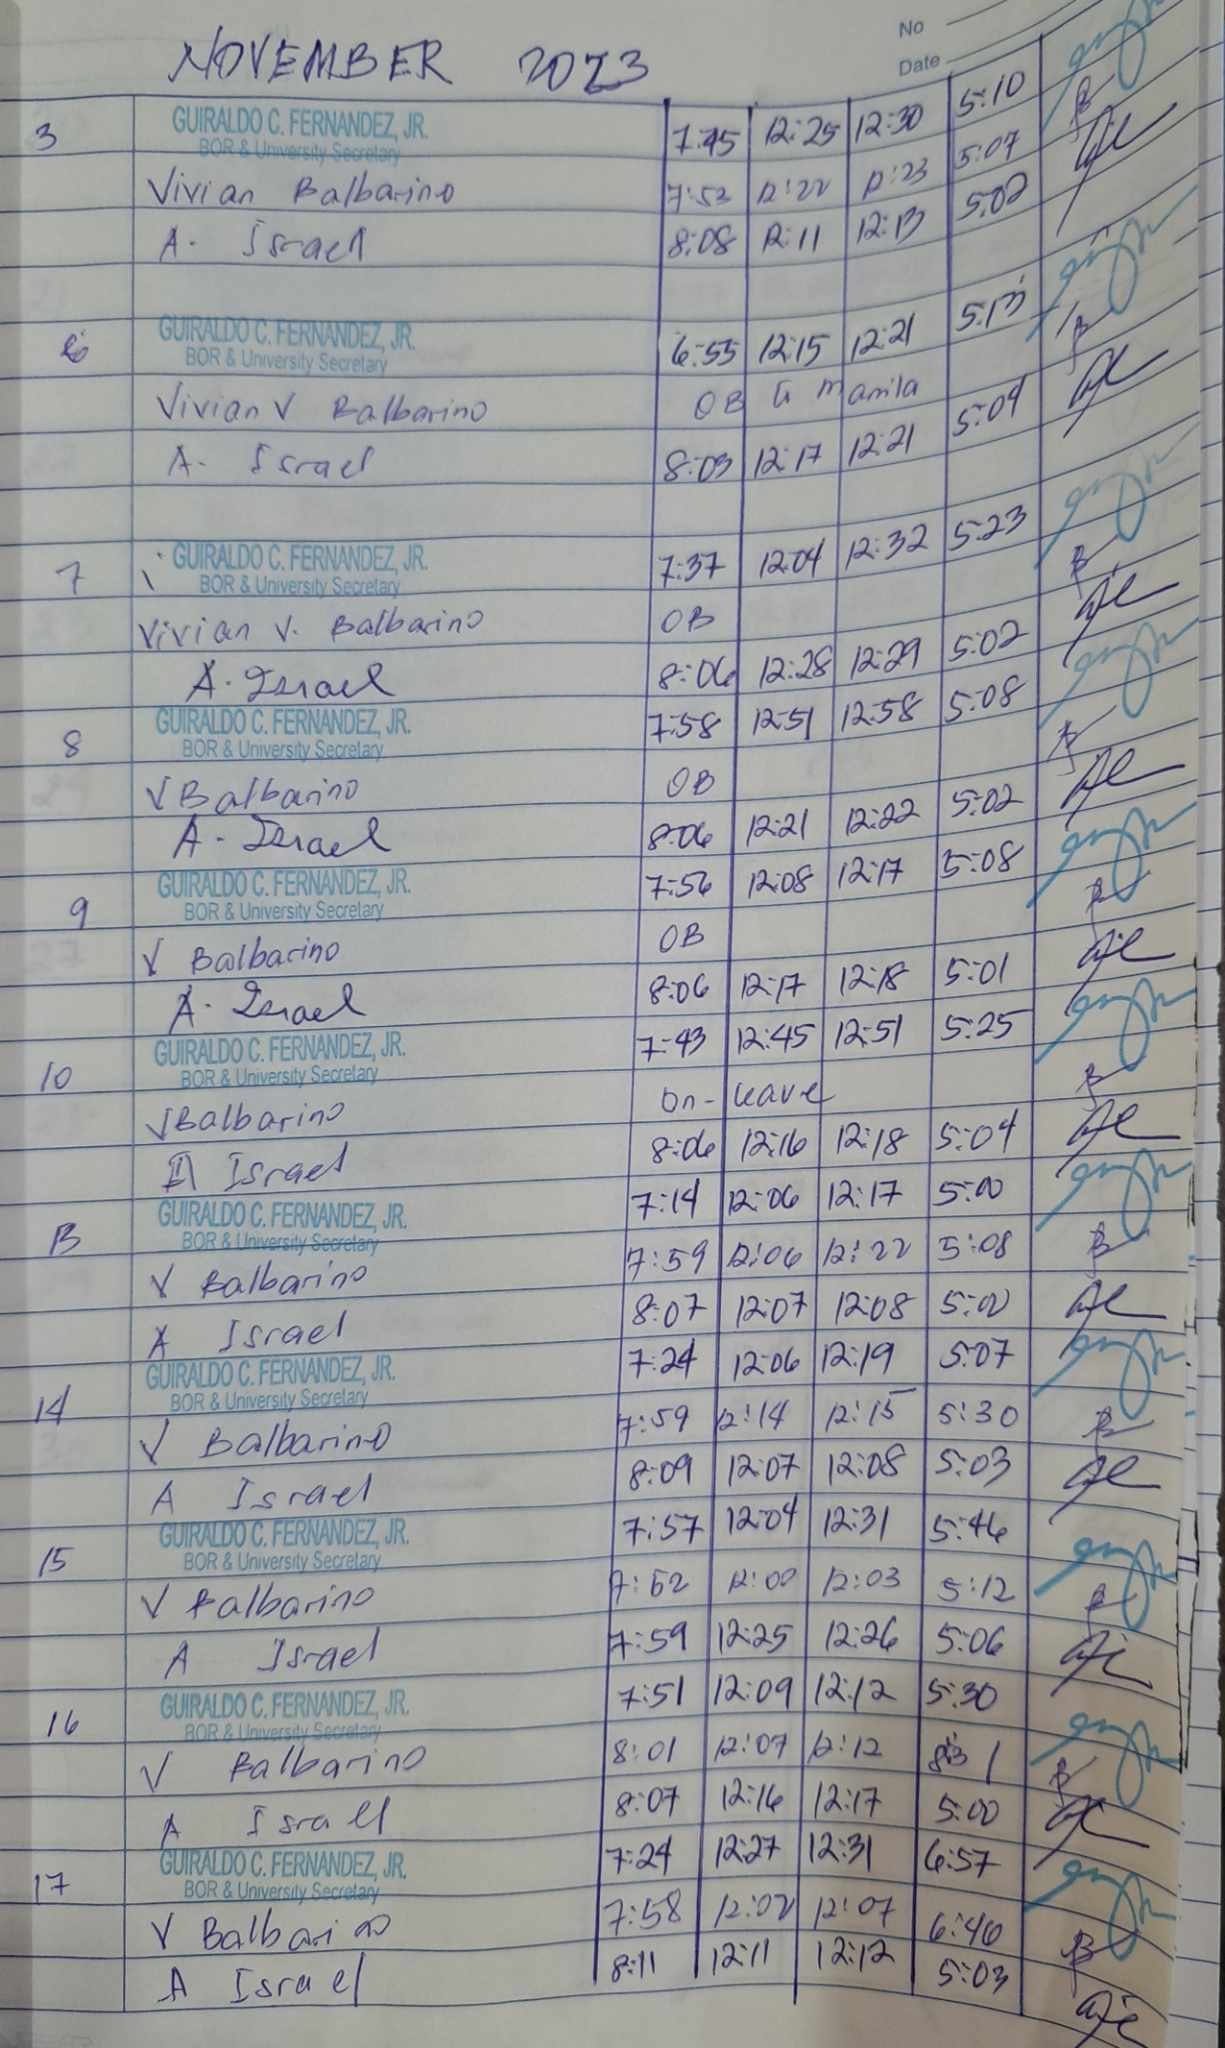 No
Date
NOVEMBER 2023
3 GUIRALDO C. FERNANDEZ, JR. 7:45 12:25 12:30 5:10
BOR & University Secretary
Vivian Balbarino 7:53 12:22 12:23 5:07
A. Israel 8:08 12:11 12:13 5:02
6 GUIRALDO C. FERNANDEZ, JR. 6:55 12:15 12:21 5:13
BOR & University Secretary
Vivian V Balbarino OB to Manila
A. Israel 8:03 12:17 12:21 5:04
7 GUIRALDO C. FERNANDEZ, JR. 7:37 12:04 12:32 5:23
BOR & University Secretary
Vivian V. Balbarino OB
A. Israel 8:06 12:28 12:29 5:02
8 GUIRALDO C. FERNANDEZ, JR. 7:58 12:51 12:58 5:08
BOR & University Secretary
V Balbarino OB
A. Israel 8:06 12:21 12:22 5:02
9 GUIRALDO C. FERNANDEZ, JR. 7:56 12:08 12:17 5:08
BOR & University Secretary
V Balbarino OB
A. Israel 8:06 12:17 12:18 5:01
10 GUIRALDO C. FERNANDEZ, JR. 7:43 12:45 12:51 5:25
BOR & University Secretary
V Balbarino On-leave
A Israel 8:06 12:16 12:18 5:04
13 GUIRALDO C. FERNANDEZ, JR. 7:14 12:06 12:17 5:00
BOR & University Secretary
V Balbarino 7:59 12:06 12:22 5:08
A Israel 8:07 12:07 12:08 5:00
14 GUIRALDO C. FERNANDEZ, JR. 7:24 12:06 12:19 5:07
BOR & University Secretary
V Balbarino 7:59 12:14 12:15 5:30
A Israel 8:09 12:07 12:08 5:03
15 GUIRALDO C. FERNANDEZ, JR. 7:57 12:04 12:31 5:46
BOR & University Secretary
V Balbarino 7:52 12:00 12:03 5:12
A Israel 7:59 12:25 12:26 5:06
16 GUIRALDO C. FERNANDEZ, JR. 7:51 12:09 12:12 5:30
BOR & University Secretary
V Balbarino 8:01 12:07 12:12
A Israel 8:07 12:16 12:17 5:00
17 GUIRALDO C. FERNANDEZ, JR. 7:24 12:27 12:31 6:57
BOR & University Secretary
V Balbarino 7:58 12:02 12:07 6:40
A Israel 8:11 12:11 12:12 5:03